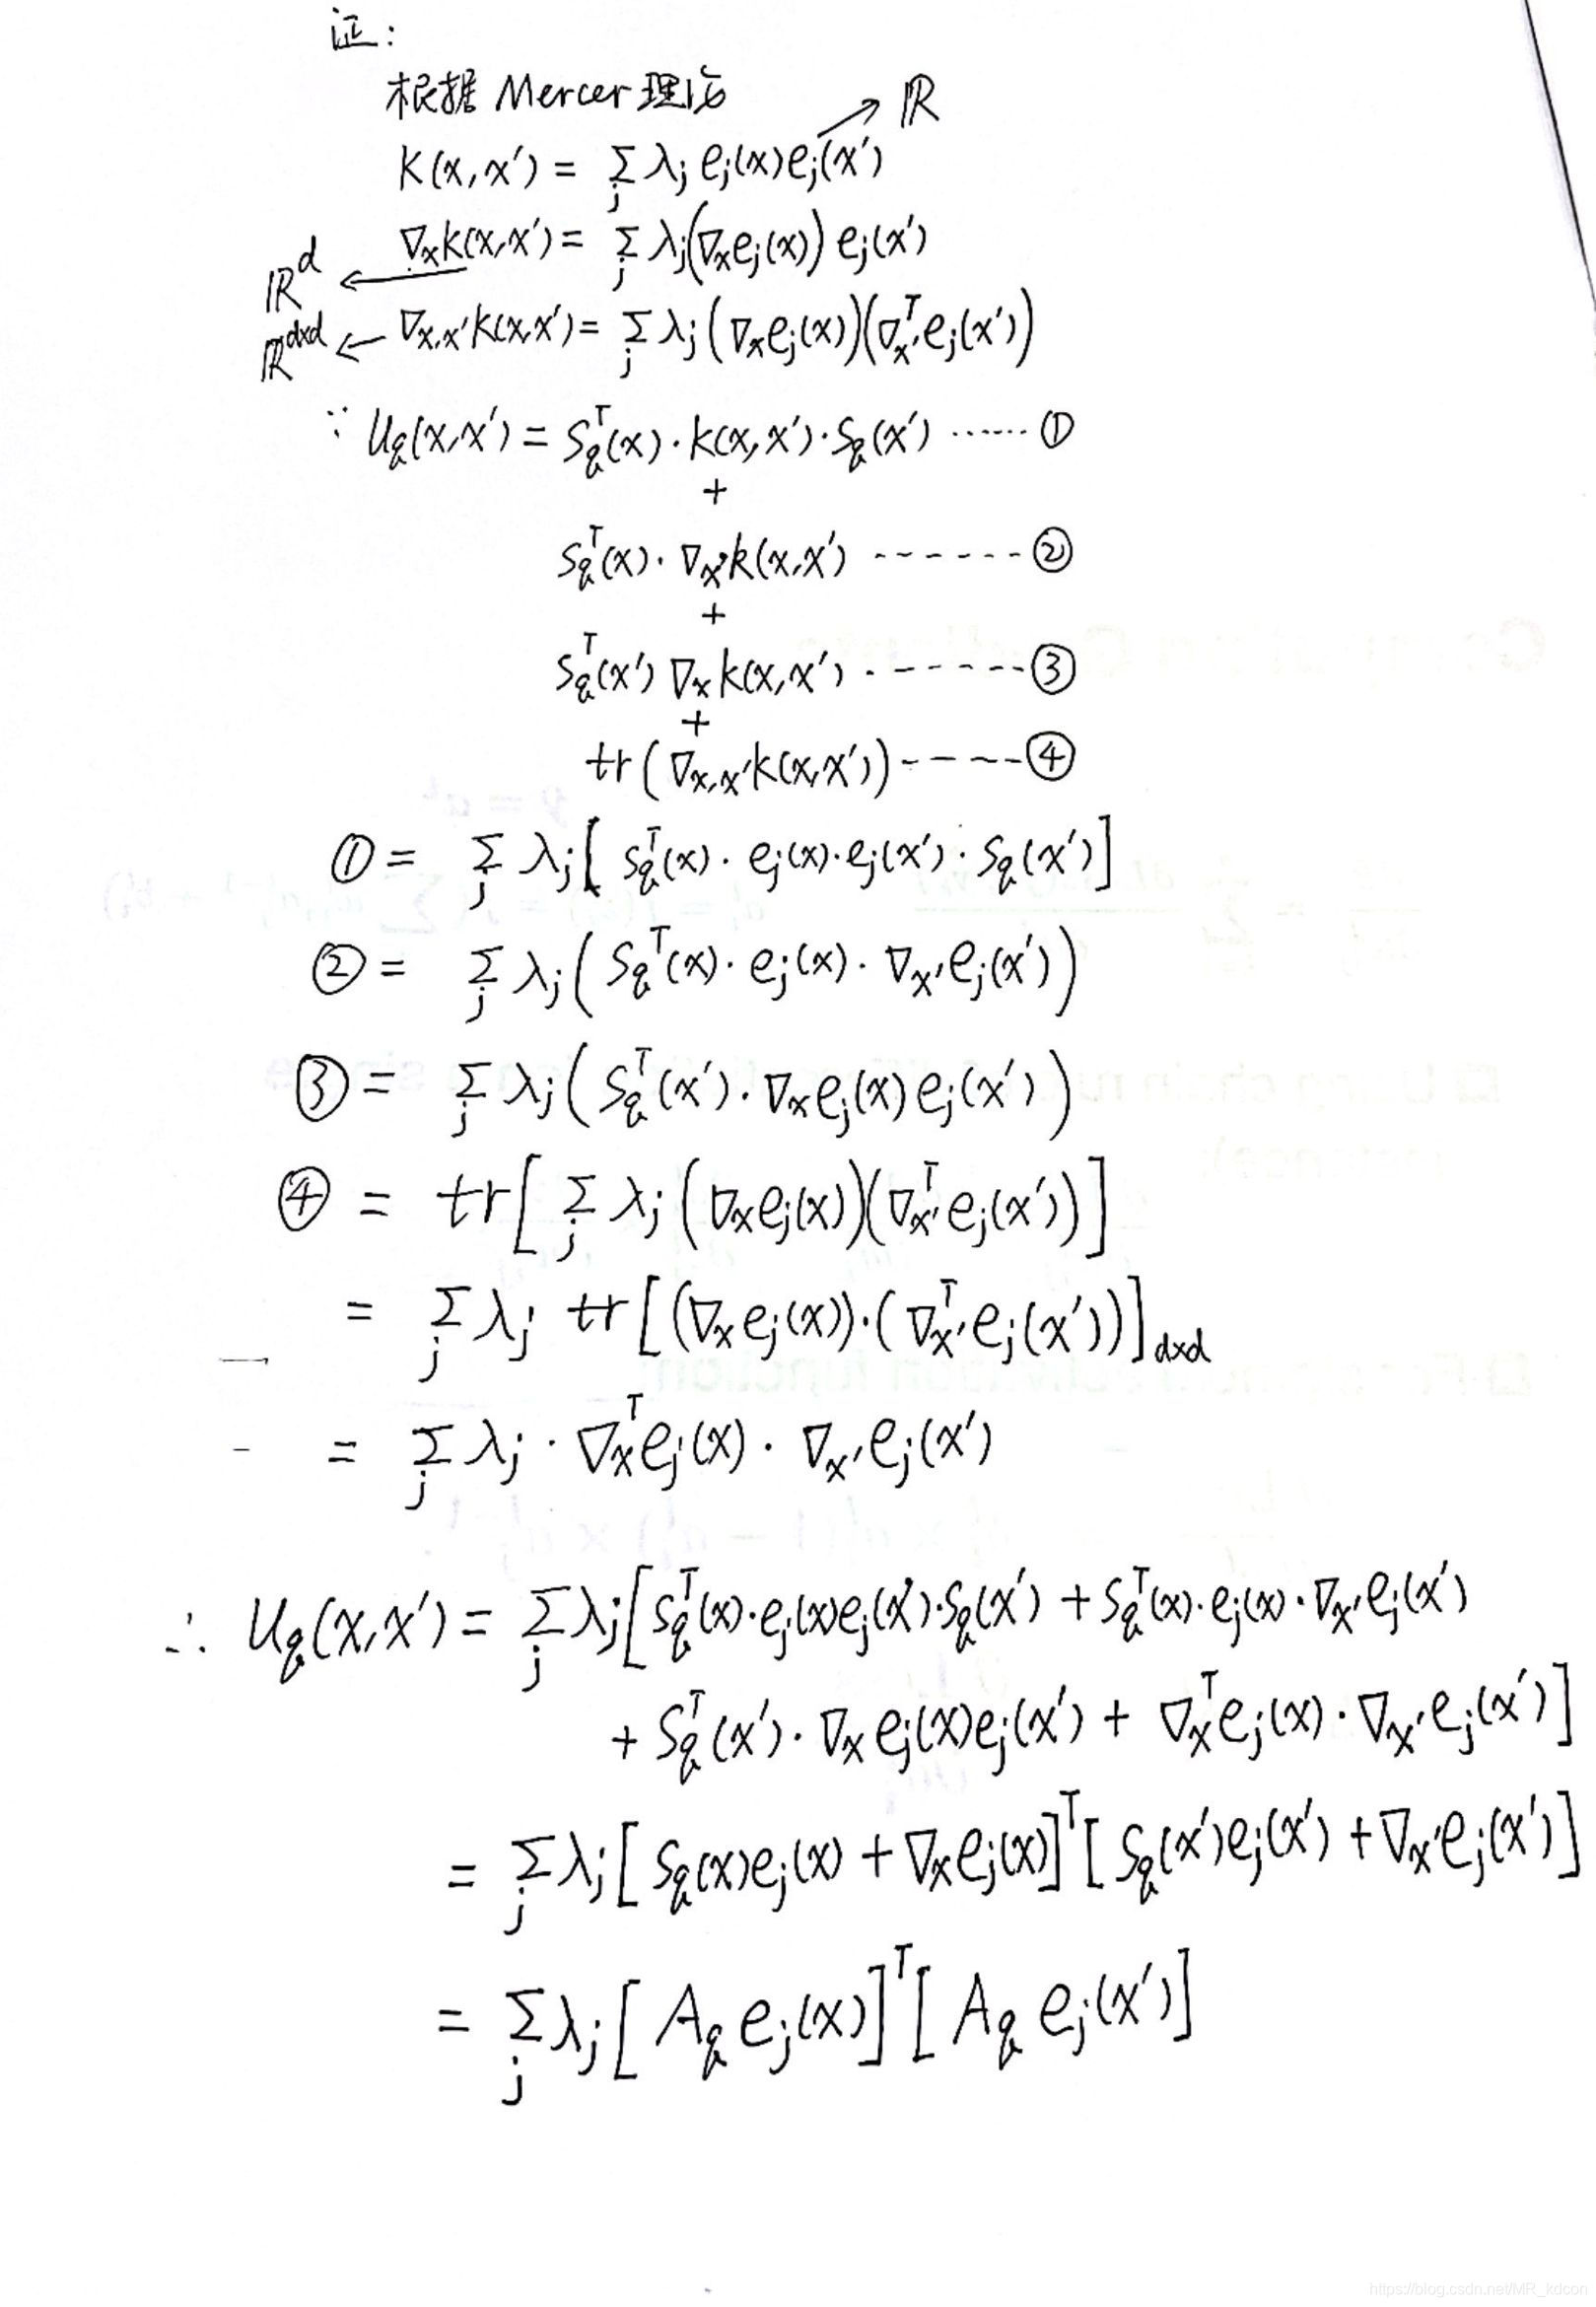 证:
根据 Mercer 理论
k(x,x') = Σ_j λ_j e_j(x)e_j(x') → ℝ
ℝ^d ← ∇_x k(x,x') = Σ_j λ_j(∇_x e_j(x)) e_j(x')
ℝ^{d×d} ← ∇_{x,x'} k(x,x') = Σ_j λ_j (∇_x e_j(x))(∇_{x'}^T e_j(x'))
∵ U_q(x,x') = S_q^T(x)·k(x,x')·S_q(x') ······ ①
+
S_q^T(x)·∇_{x'}k(x,x') ------- ②
+
S_q^T(x') ∇_x k(x,x') ------- ③
+
tr(∇_{x,x'}k(x,x')) ----- ④
① = Σ_j λ_j[S_q^T(x)·e_j(x)·e_j(x')·S_q(x')]
② = Σ_j λ_j(S_q^T(x)·e_j(x)·∇_{x'}e_j(x'))
③ = Σ_j λ_j(S_q^T(x')·∇_x e_j(x) e_j(x'))
④ = tr[Σ_j λ_j (∇_x e_j(x))(∇_{x'}^T e_j(x'))]
= Σ_j λ_j tr[(∇_x e_j(x))·(∇_{x'}^T e_j(x'))]_{d×d}
= Σ_j λ_j·∇_x^T e_j(x)·∇_{x'} e_j(x')
∴ U_q(x,x') = Σ_j λ_j[S_q^T(x)·e_j(x)e_j(x')·S_q(x') + S_q^T(x)·e_j(x)·∇_{x'}e_j(x')
+ S_q^T(x')·∇_x e_j(x)e_j(x') + ∇_x^T e_j(x)·∇_{x'}e_j(x')]
= Σ_j λ_j[S_q(x)e_j(x) + ∇_x e_j(x)]^T[S_q(x')e_j(x') + ∇_{x'}e_j(x')]
= Σ_j λ_j[A_q e_j(x)]^T[A_q e_j(x')]
https://blog.csdn.net/MR_kdcon